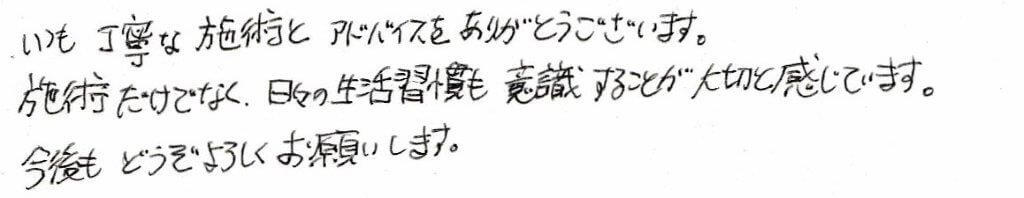 いつも 丁寧な 施術と アドバイスを ありがとうございます。
施術だけでなく、日々の生活習慣も 意識することが大切と感じています。
今後も どうぞよろしく お願いします。